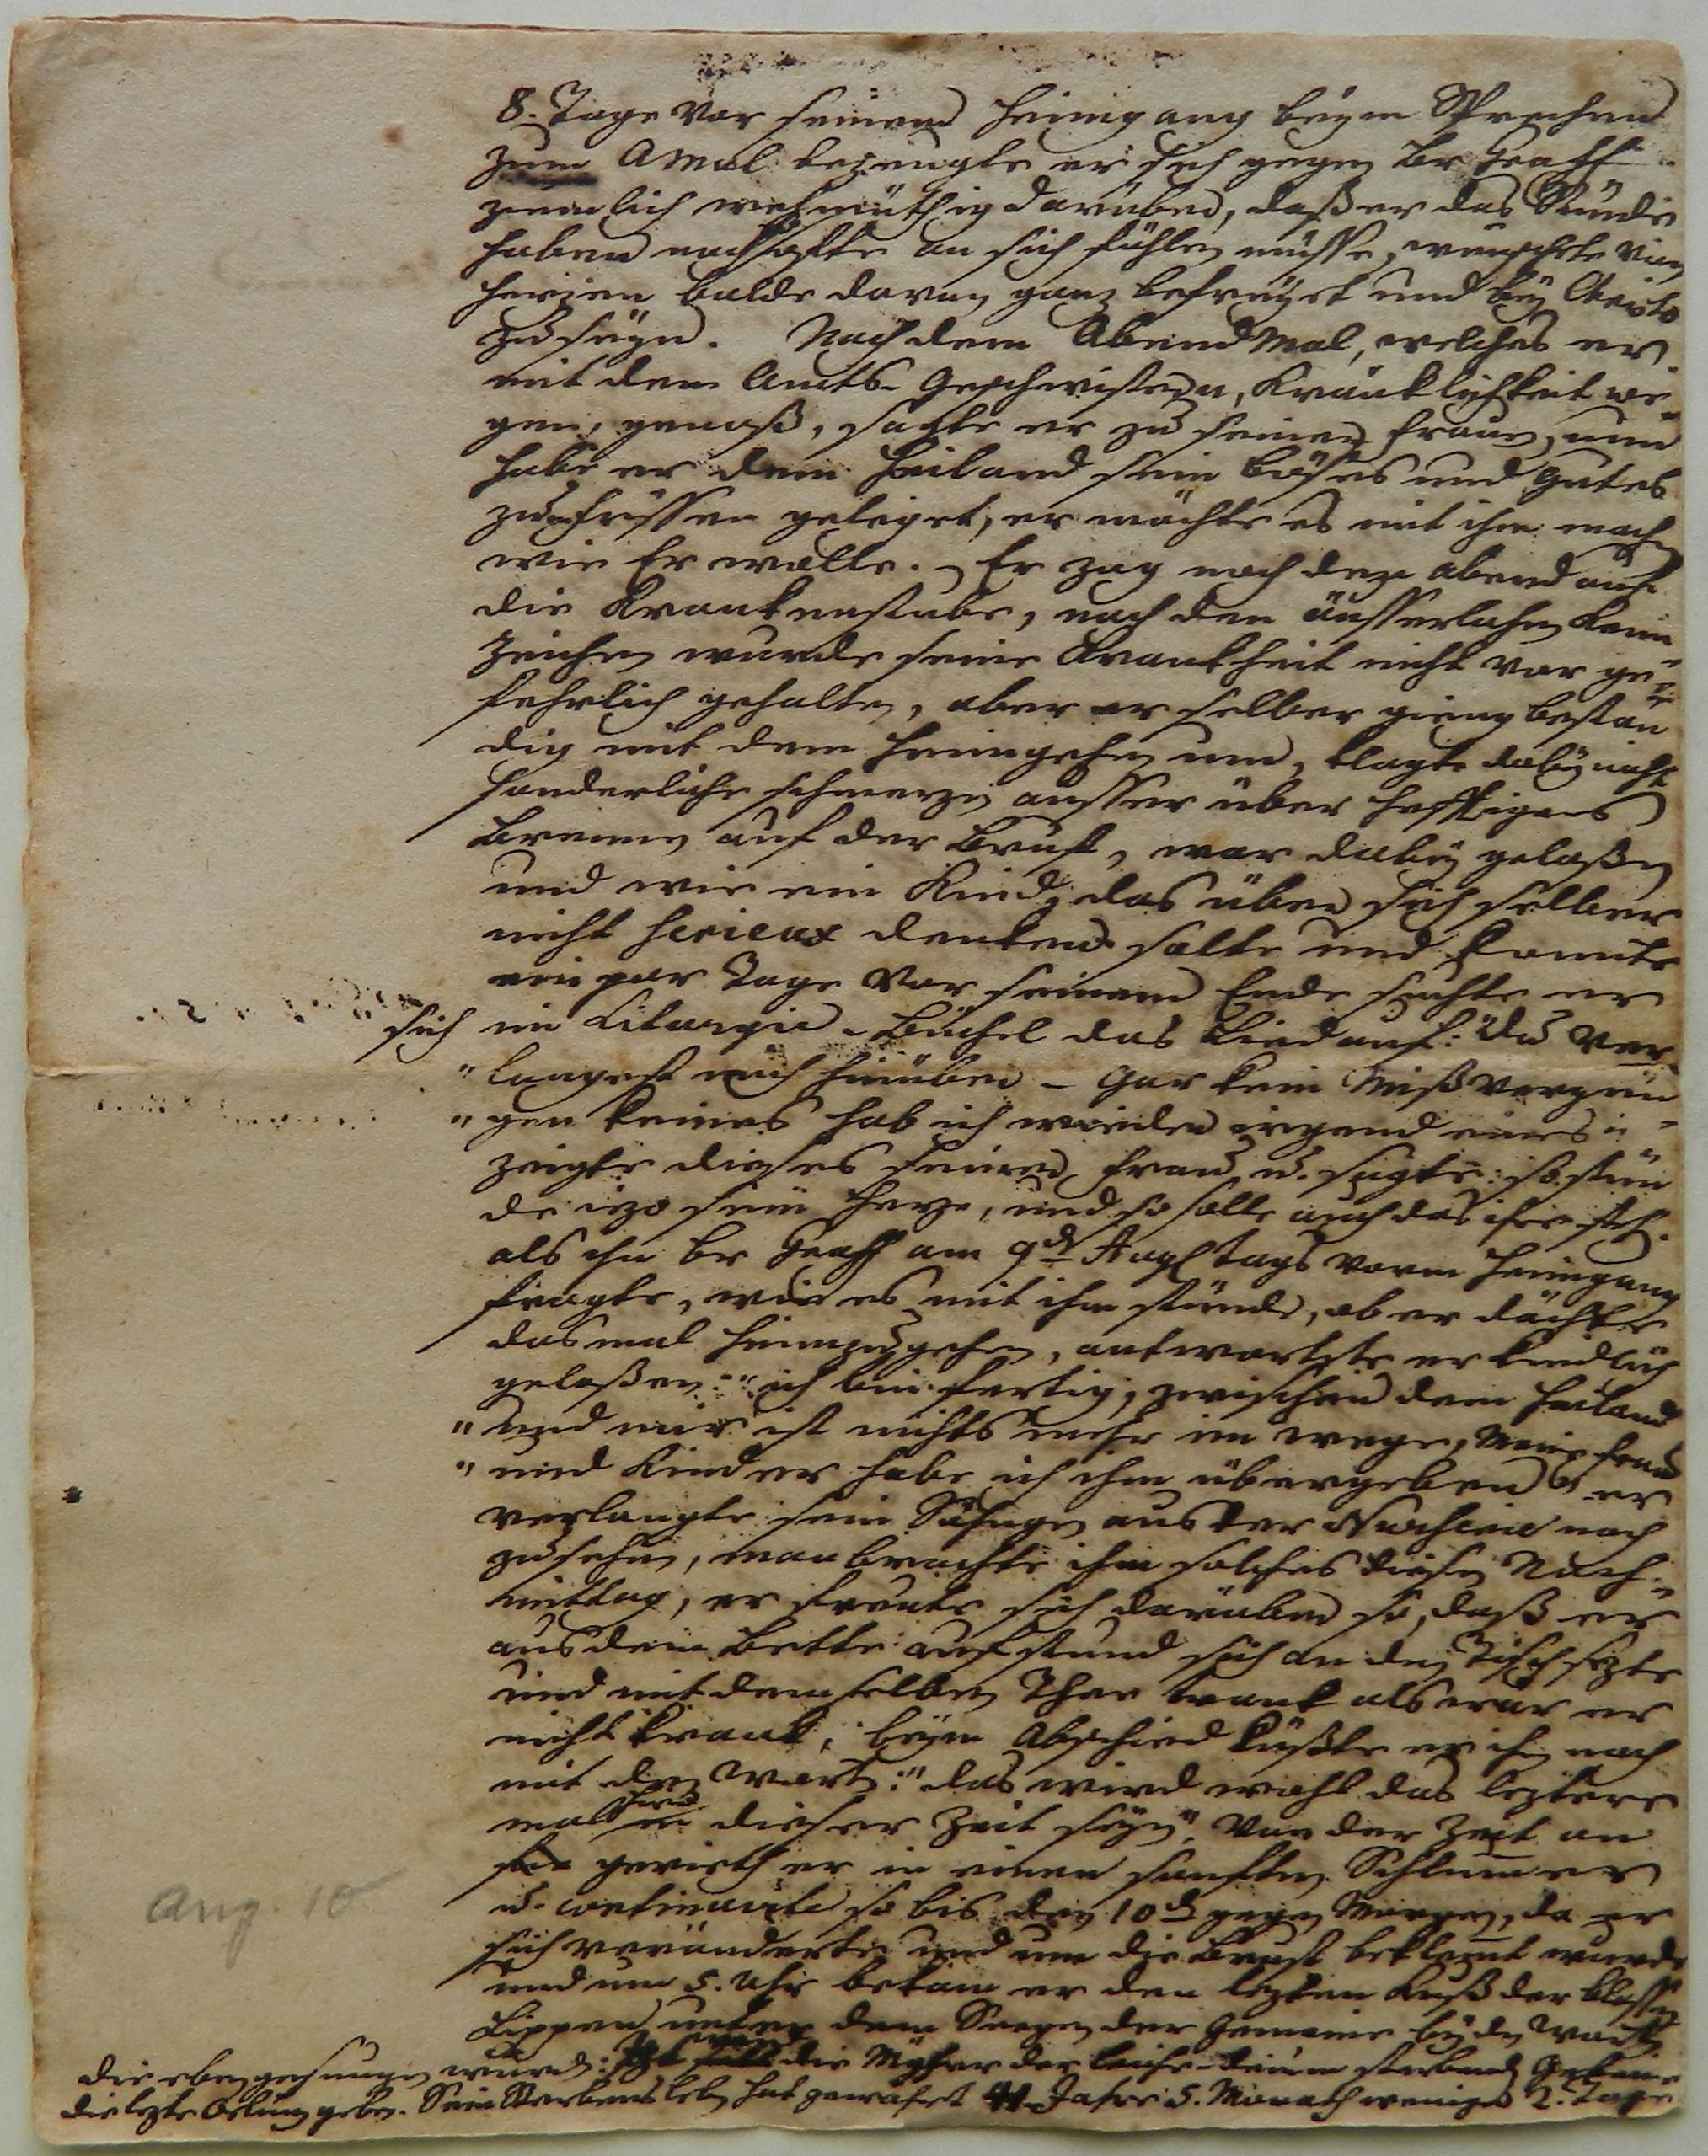 8. Tage vor seinem Heimgang beym Sprechen
zum AMal bezeugte er sich gegen Br Graff
ziemlich wehmüthig darüber, daß er das Sünde
haben noch ofte an sich fühlen müsse, wünschete von
Herzen balde davon ganz befreyet und bey Christo
zu seyn. Nach dem AbendMal, welches er
mit den Amts-Geschwistern, Kränklichkeit we-
gen, genoß, sagte er zu seiner Frauen, nun
habe er dem Heiland sein böses und gutes
zu Füssen geleget, er möchte es mit ihm mach
wie Er wolle. Er zog noch den Abend auf
die Krankenstube, nach den äusserlichen Kenn
Zeichen wurde seine Krankheit nicht vor ge-
fehrlich gehalten, aber er selber gieng bestän
dig mit dem Heimgehen um, klagte dabey nicht
sonderliche schmerzen ausser über hefftiges
Brennen auf der Brust, war dabey gelaßen
und wie ein Kind, das über sich selber
nicht serieux denken solte und konnte
ein par Tage vor seinem Ende suchte er
sich im Liturgie-Büchel das Lied auf: "du ver-
"langest mich hinüber - Gar kein Mißvergnü-
"gen keines hab ich wieder irgend eines
zeigte dieses seiner Frau u. sagte: so stün
de izo sein Herze, und so solle auch das ihre steh.
als ihn Br Graff am 9ten Aug tags vorm Heimgang
fragte, wie es mit ihm stünde, ob er dächte
dasmal heimzugehen, antwortete er kindlich
gelaßen: "ich bin fertig, zwischen dem Heiland
"und mir ist nichts mehr im wege, Meine Frau
"und Kinder habe ich ihm übergeben" er
verlangte sein Söhngen aus der noch
zu sehen, man brachte ihm solches diesen Nach-
mittag, er freute sich darüber so, daß er
aus dem Bette aufstund sich an den Tisch sezte
und mit demselben Thee trank als wär er
nicht krank, beym Abschied küßte er ihn noch
mit den Worten: "das wird wohl das leztere
mal in dieser Zeit seyn". Von der Zeit an
gerieth er in einen sanften Schlummer
u. continuirte so bis den 10ten gegen Morgen, da er
sich veränderte und um die Brust beklemt wurde
und um 5. Uhr bekam er den lezten Kuß der blassen
Lippen unter dem Seegen der Gemeine bey den Worten
die eben gesungen wurden: die der Leiche keinem sterbend Gebeine
die lezte Oelung geben. Sein Sterbens leben hat gewähret 41 Jahre 5. Monath weniger 2. Tage
Aug. 10